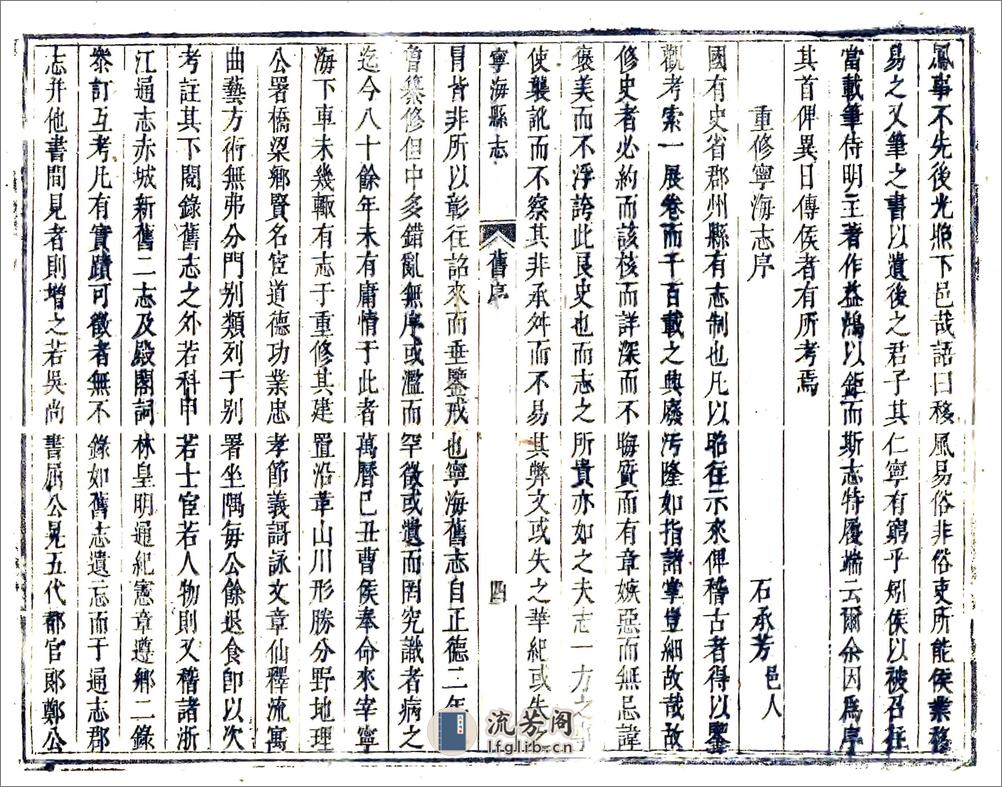 鳳事不先後光照下邑哉語曰移風易俗非俗吏所能侯業移
易之又筆之書以遺後之君子其仁寧有窮乎矧侯以被召在
當載筆侍明主著作益鴻以鉅而斯志特履端云爾余因為序
其首俾異日傳侯者有所考焉
重修寧海志序
石承芳邑人
國有史省郡州縣有志制也凡以昭往示來俾稽古者得以鑒
觀考索一展卷而千百載之典廢汚隆如指諸掌豈細故哉故
修史者必約而該核而詳深而不晦質而有章嫉惡而無忌諱
褒美而不浮誇此良史也而志之所貴亦如之夫志一方之
使襲訛而不察其非承舛而不易其弊文或失之華紀或失之
寧海縣志
舊序
四
冐皆非所以彰往詔來而垂鑒戒也寧海舊志自正德二年
曾纂修但中多錯亂無序或濫而罕徵或遺而罔究識者病之
迄今八十餘年未有庸情于此者萬曆巳丑曹侯奉命來宰寧
海下車未幾輙有志于重修其建置沿革山川形勝分野地理
公署橋梁鄉賢名宦道德功業忠孝節義謌詠文章仙釋流寓
曲藝方術無弗分門別類列于別署坐隅每公餘退食即以次
考註其下閱錄舊志之外若科甲若士宦若人物則又稽諸浙
江通志赤城新舊二志及殿閣詞林皇明通紀憲章遵鄉二錄
叅訂互考凡有實蹟可徵者無不錄如舊志遺忘而于通志郡
志并他書間見者則增之若吳尚書屆公晃五代都官郎鄭公
流芳阁
lfglib.com